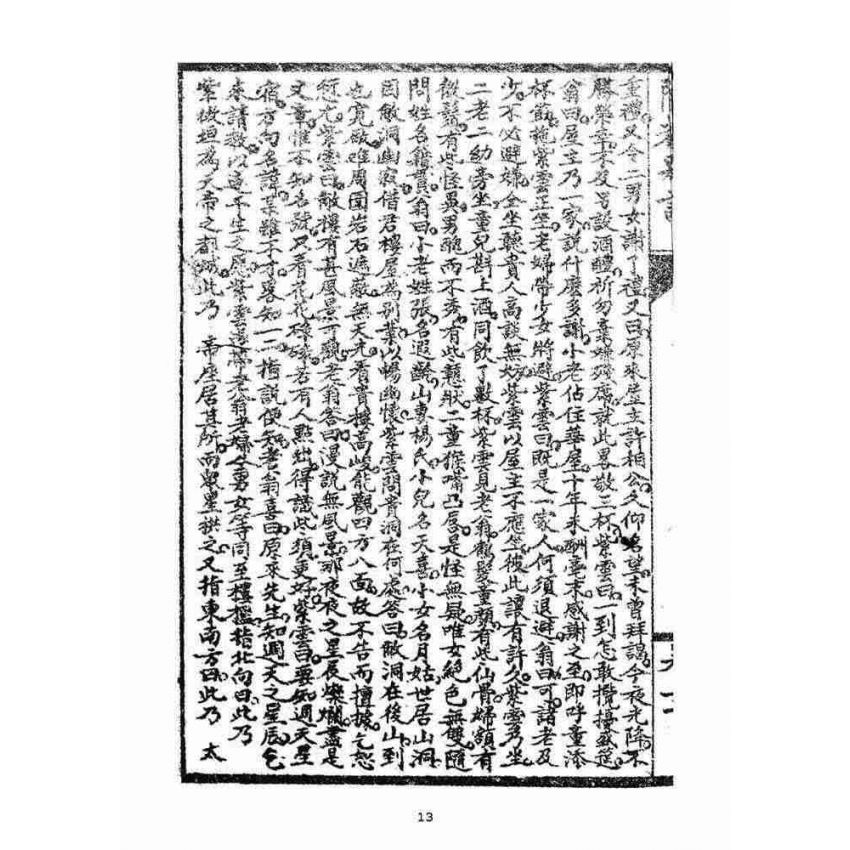 重禮又令二男女謝了禮又曰原來屋主許相公久仰名望未曾拜謁今夜光降不
勝榮幸未及另設酒醴祈勿棄嫌殘席就此畧敬三杯紫雲曰一到怎敢攪擾盛筵
翁曰屋主乃一家說什麼多謝小老佔住華屋十年未酬毫末感謝之至即呼童添
杯飭拖紫雲正坐老婦帶少女將避紫雲曰既是一家人何須退避翁曰可諸老及
少不必避嫌仝坐聽貴人高談無妨紫雲以屋主不應坐彼此讓有許久紫雲乃坐
二老二幼旁坐童兒斟上酒同飲了數杯紫雲見老翁鶴髮童顏有些仙骨婦額有
微鬚有些怪異男醜而不秀有些戇狀二童猴嘴凸唇是怪無疑唯女絕色無雙隨
問姓名籍貫翁曰小老姓張名遐齡山妻楊氏小兒名天喜小女名月姑世居山洞
因敝洞幽寂借君樓屋為別業以暢幽懷紫雲問貴洞在何處答曰敝洞在後山到
也寬敞唯周圍岩石遮蔽無天光看貴樓高峻能觀四方八面故不告而擅據乞恕
愆尤紫雲曰敝樓有甚風景可觀老翁答曰漫說無風景那夜夜之星辰燦爛盡是
文章惟不知名號只看花花碌碌若有人點出得識此須更好紫雲曰要知週天星
宿方向名諱某雖不才畧知一二指說便知貴翁喜曰原來先生知週天之星辰乞
來請教以遂平生之愿紫雲遂帶老翁老婦仝男女等同至樓檻指北向曰此乃
紫微垣為天帝之都城此乃 帝座居其所而眾星拱之又指東南方曰此乃 太
13